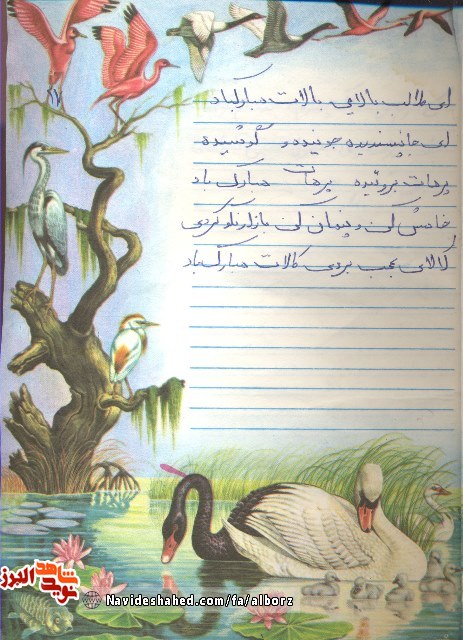 ۲۷
ای طالب بالایی بالات مبارکباد
ای جانپسندیده جوینده و کوشیده
پرهات بروئیده پرهات مبارک باد
خامش کن و پنهان کن بازار نکو کردی
کالای عجب بردی کالات مبارک باد
نوید شاهد البرز
Navideshahed.com/fa/alborz